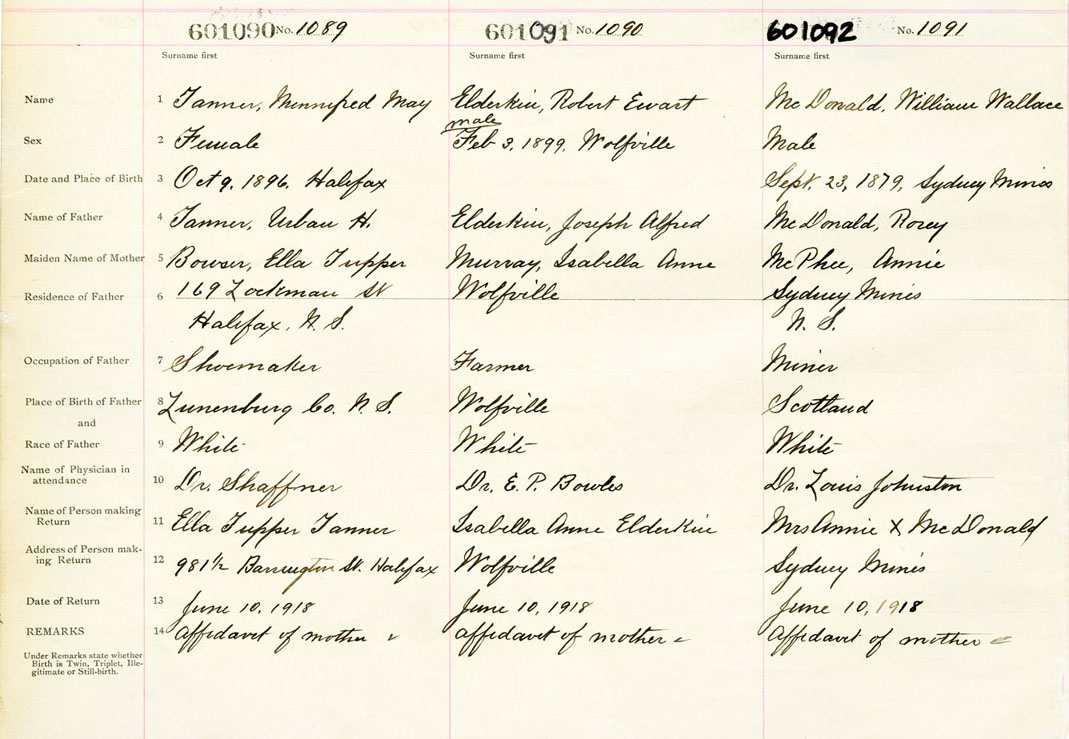 601090 No. 1089 601091 No. 1090 601092 No. 1091
Surname first Surname first Surname first
Name 1 Tanner, Minnifred May Elderkin, Robert Ewart McDonald, William Wallace
male
Sex 2 Female Feb 3, 1899, Wolfville Male
Date and Place of Birth 3 Oct 9, 1896, Halifax Sept. 23, 1879, Sydney Mines
Name of Father 4 Tanner, Urban H. Elderkin, Joseph Alfred McDonald, Rorey
Maiden Name of Mother 5 Bowser, Ella Tupper Murray, Isabella Anne McPhee, Annie
Residence of Father 6 169 Lockman St Wolfville Sydney Mines
Halifax, N. S. N. S.
Occupation of Father 7 Shoemaker Farmer Miner
Place of Birth of Father 8 Lunenburg Co. N. S. Wolfville Scotland
and
Race of Father 9 White White White
Name of Physician in
attendance 10 Dr. Shaffner Dr. E. P. Bowles Dr. Louis Johnston
Name of Person making
Return 11 Ella Tupper Tanner Isabella Anne Elderkin Mrs Annie X McDonald
Address of Person mak-
ing Return 12 981½ Barrington St. Halifax Wolfville Sydney Mines
Date of Return 13 June 10, 1918 June 10, 1918 June 10, 1918
REMARKS 14 Affidavit of mother affidavit of mother Affidavit of mother
Under Remarks state whether
Birth is Twin, Triplet, Ille-
gitimate or Still-birth.